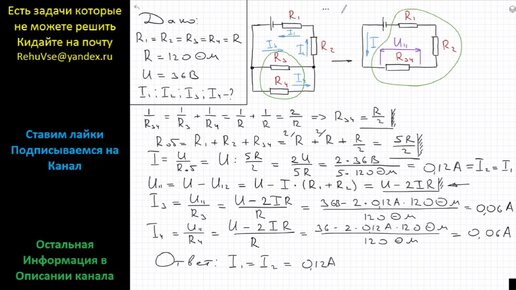 Есть задачи которые
не можете решить
Кидайте на почту
RehuVse@yandex.ru
Ставим лайки
Подписываемся на
Канал
Остальная
Информация в
Описании канала
Дано:
R₁ = R₂ = R₃ = R₄ = R
R = 120 Ом
U = 36В
I₁; I₂; I₃; I₄ - ?
R₁
I₂
R₂
I₃
R₃
I₄
R₄
R₁
I
U₁₁
R₂
R₃₄
1/R₃₄ = 1/R₃ + 1/R₄ = 1/R + 1/R = 2/R => R₃₄ = R/2
Rоб = R₁ + R₂ + R₃₄ = ²⁄R + ²⁄R + R/2 = 5R/2
I = U/Rоб = U : 5R/2 = 2U/5R = 2·36В/5·120Ом = 0,12А = I₂ = I₁
U₁₁ = U − U₁₂ = U − I·(R₁ + R₂) = U − 2IR
I₃ = U₁₁/R₃ = U − 2IR/R = 36В − 2·0,12А·120Ом/120Ом = 0,06А
I₄ = U₁₁/R₄ = U − 2IR/R = 36 − 2·0,12А·120Ом/120Ом = 0,06А
Ответ: I₁ = I₂ = 0,12А